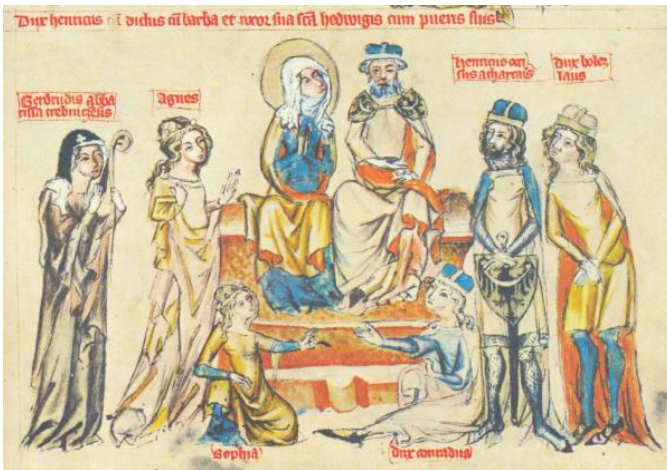 Dux henricus dictus cū barba et uxor sua sc̄a hedwigis cum pueris suis
Gerdrudis abba
tissa trebniczēsis
Agnes
henricus occi
sus a thartaris
dux bolez
laus
Sophia
dux conradus